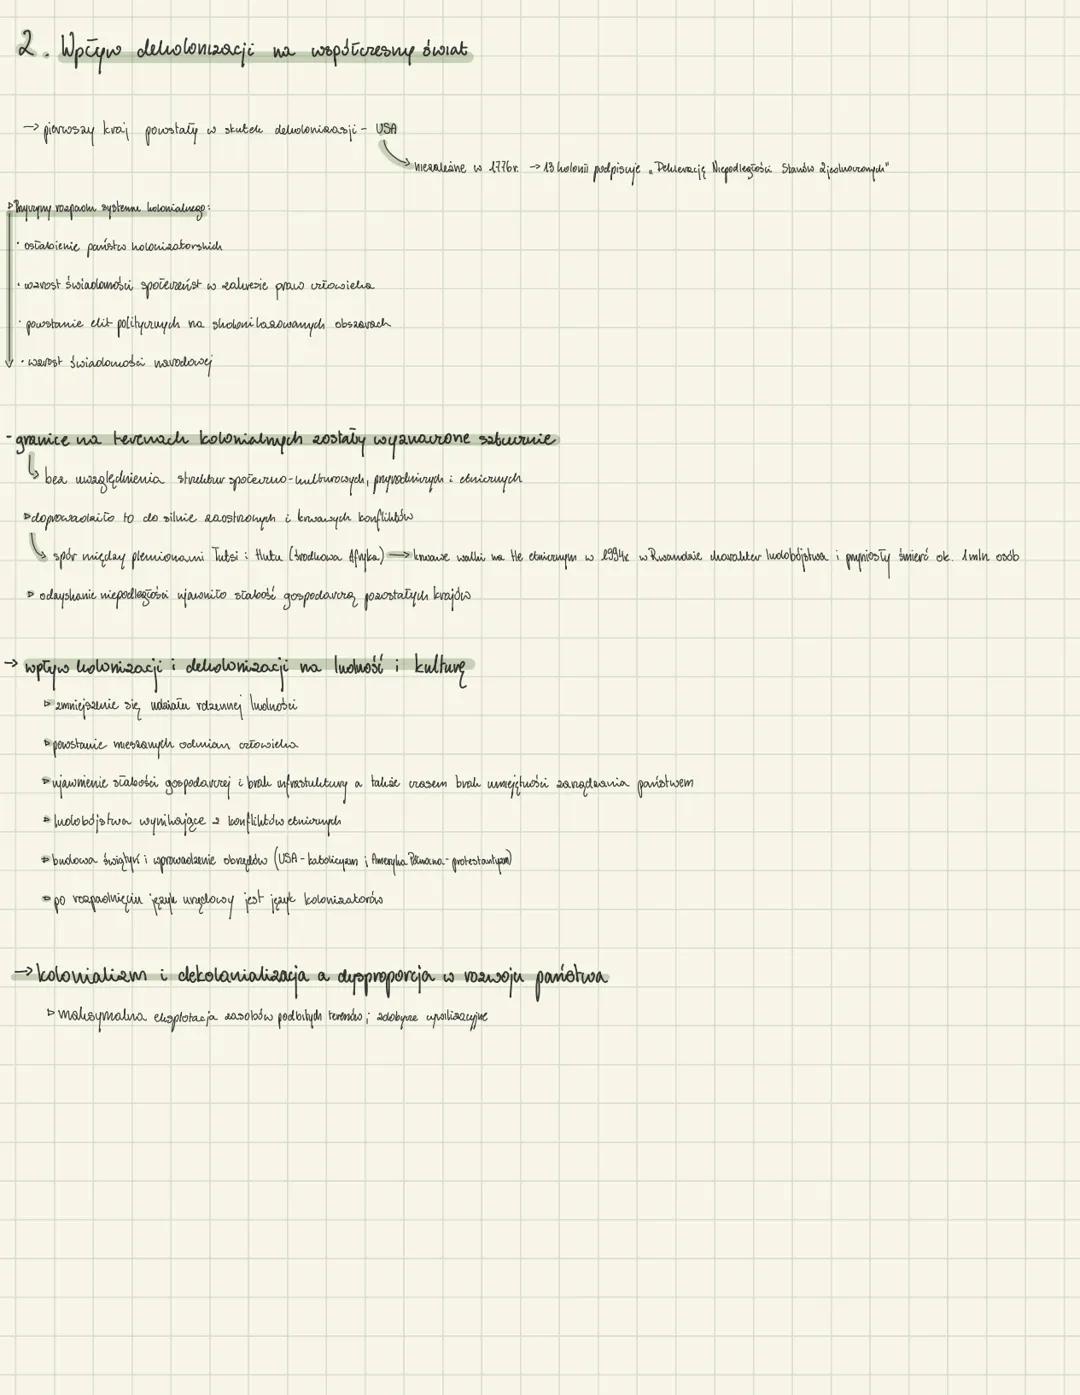 2. Wpływ dekolonizacji na współczesny świat
→ pierwszy kraj powstały w skutek dekolonizasji - USA
niezależne w 1776r. → 13 kolonii podpisuje „Deklerację Niepodległości Stanów Zjednoczonych"
▹ Przyczyny rozpadu systemu kolonialnego:
• osłabienie państw kolonizatorskich
• wzrost świadomości społeczeńst w zakresie praw człowieka
• powstanie elit politycznych na skolonilazowanych obszarach
• wzrost świadomości narodowej
- granice na terenach kolonialnych zostały wyznaczone sztucznie
bez uwzględnienia struktur społeczno-kulturowych, przyrodniczych i etnicznych
▹ doprowadziło to do silnie zaostrzonych i krwawych konfliktów
spór między plemionami Tutsi i Hutu (środkowa Afryka) → krwawe walki na tle etnicznym w 1994r. w Rwandzie charakter ludobójstwa i przyniosły śmierć ok. 1mln osób
▹ odzyskanie niepodległości ujawniło słabość gospodarczą pozostałych krajów
→ wpływ kolonizacji i dekolonizacji na ludność i kulturę
▹ zmniejszenie się udziału rdzennej ludności
▹ powstanie mieszanych odmian człowieka
▹ ujawnienie słabości gospodarczej i brak infrastuktury a także czasem brak umiejętności zarządzania państwem
▹ ludobójstwa wynikające z konfliktów etnicznych
▹ budowa świątyń i wprowadzenie obrzędów (USA - katolicyzm ; Ameryka Północna - protestantyzm)
▹ po rozpadnięciu język urzędowy jest język kolonizatorów
→ kolonializm i dekolanializacja a dysproporcja w rozwoju państwa
▹ maksymalna eksplotacja zasobów podbitych terenów ; zdobycze cywilizacyjne